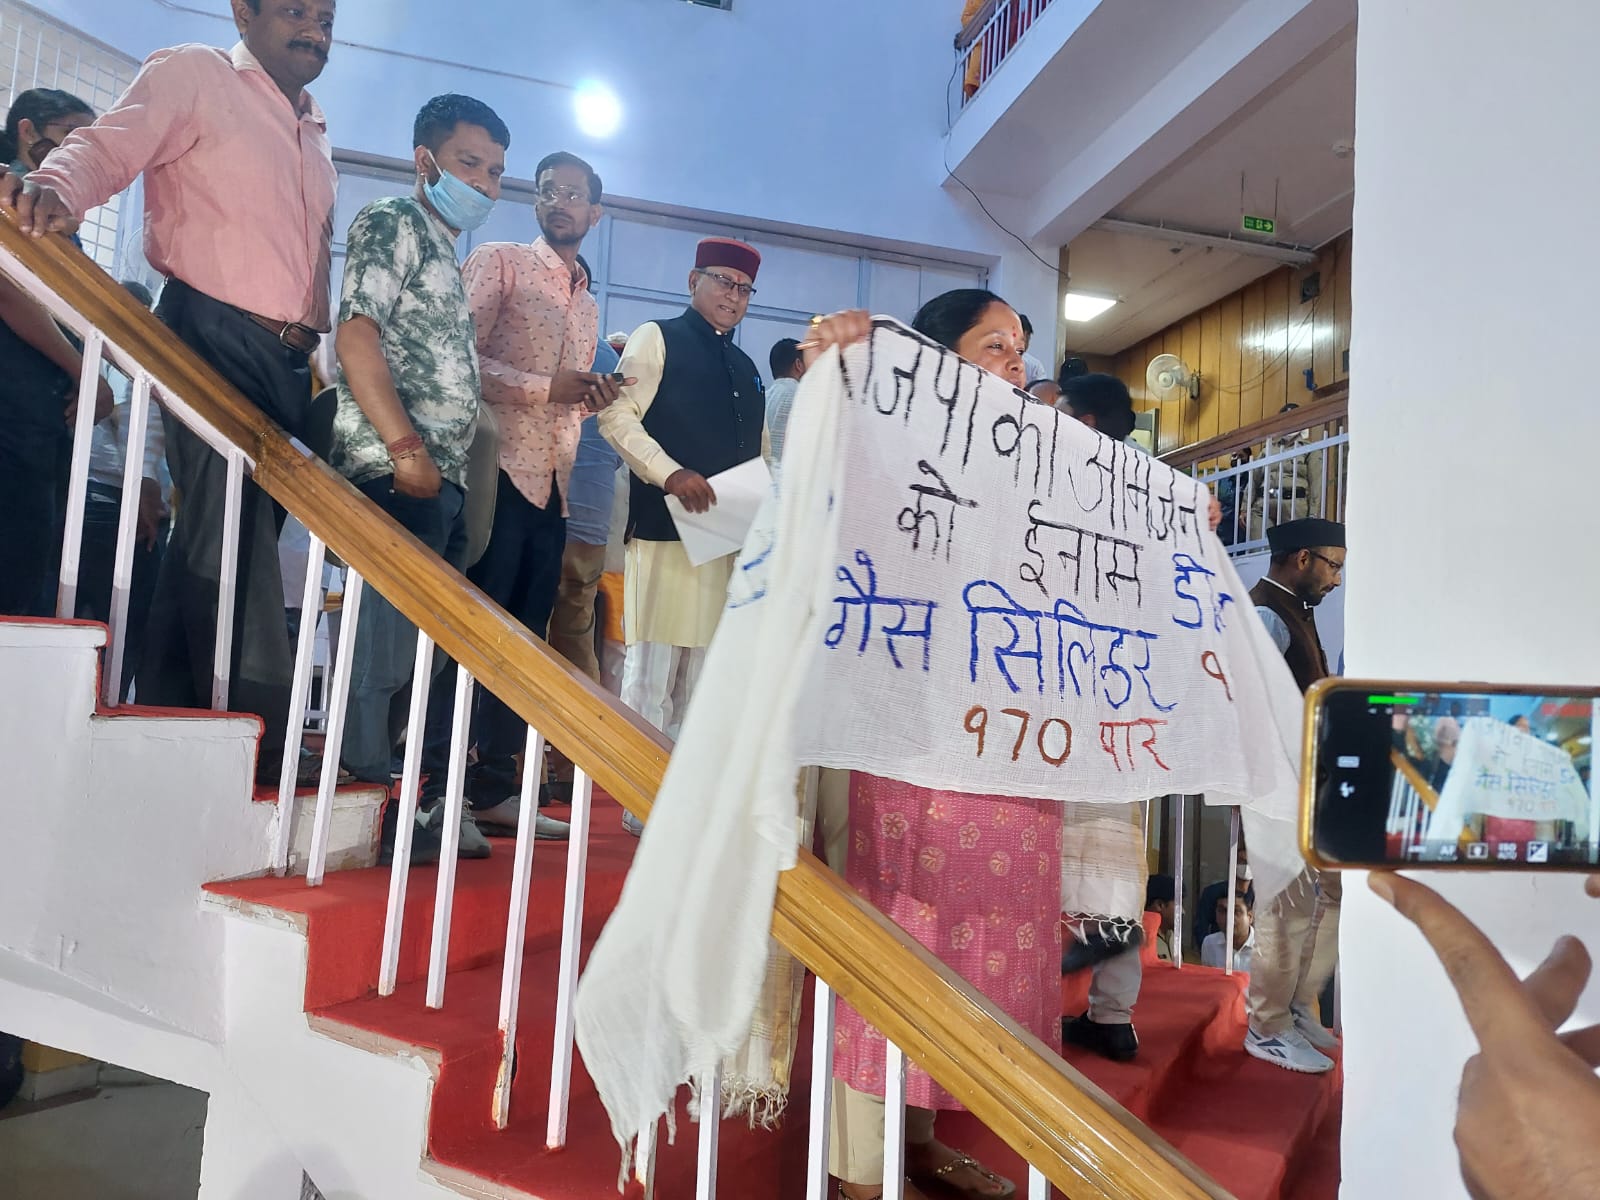 भाजपा का आमजन
को ईनाम
गैस सिलिडर
१70 पार